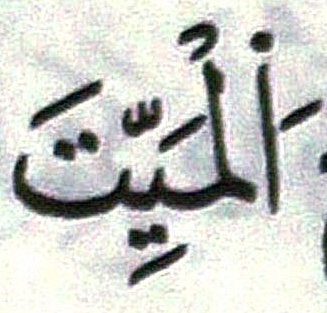 اَ۬لْمَيِّتَ